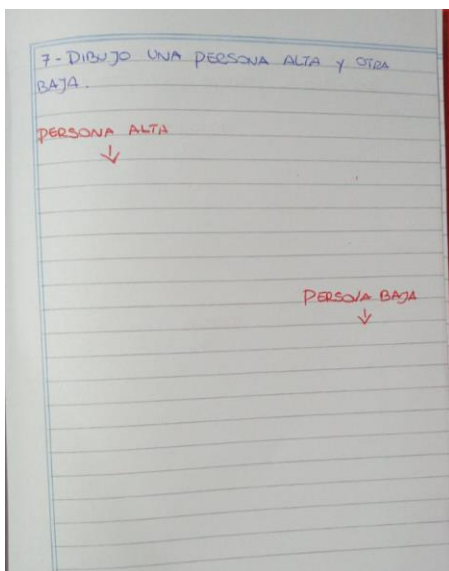 7-DIBUJO UNA PERSONA ALTA Y OTRA
BAJA.
PERSONA ALTA
PERSONA BAJA